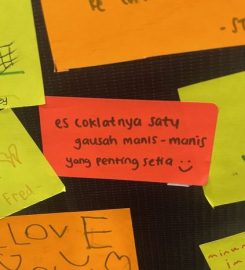 es coklatnya satu
gausah manis-manis
yang penting setia
Fred
LOVE